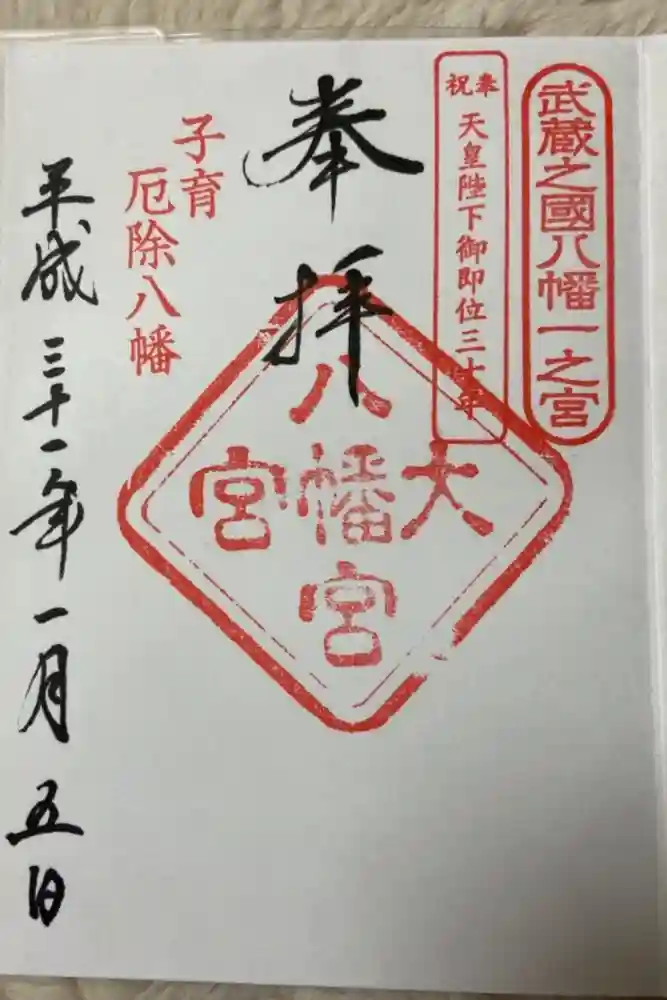 武蔵之國八幡一之宮
奉祝
天皇陛下御即位三十年
奉拝
八幡宮
大
宮
子育
厄除八幡
平成三十一年一月五日